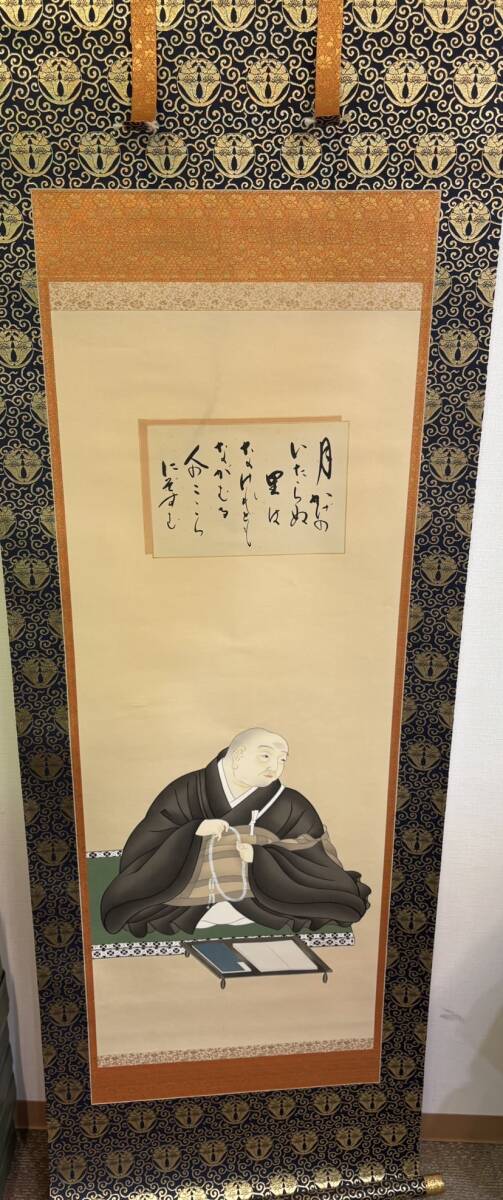 月かげの
いたらぬ
里は
なけれども
ながむる
人のこころ
にぞすむ